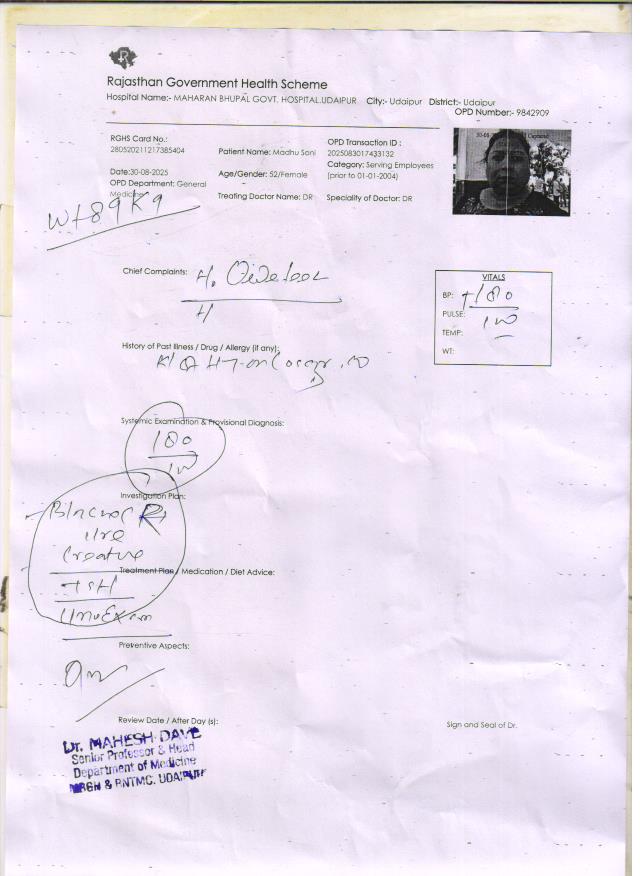 Rajasthan Government Health Scheme
Hospital Name:- MAHARAN BHUPAL GOVT. HOSPITAL.UDAIPUR City:- Udaipur District:- Udaipur
OPD Number:- 9842909
RGHS Card No.:
280520211217385404
Patient Name: Madhu Soni
OPD Transaction ID :
2025083017433132
Category: Serving Employees
(prior to 01-01-2004)
Date:30-08-2025
OPD Department: General
Medicine
Age/Gender: 52/Female
Treating Doctor Name: DR
Speciality of Doctor: DR
Wt 89 Kg
Chief Complaints:
VITALS
BP: 180
PULSE:
TEMP:
WT:
History of Past Illness / Drug / Allergy (if any):
Systemic Examination & Provisional Diagnosis:
180
Investigation Plan:
Treatment Plan / Medication / Diet Advice:
TSH
Preventive Aspects:
Review Date / After Day (s):
Sign and Seal of Dr.
Dr. MAHESH DAVE
Senior Professor & Head
Department of Medicine
MBGH & RNTMC, UDAIPUR